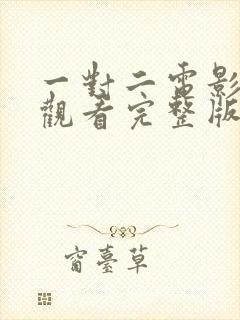 一對二電影
觀看完整版
窗臺草